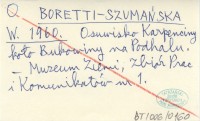 Q BORETTI-SZUMAŃSKA
W. 1960. Osuwisko Karpenciny
koło Bukowiny na Podhalu.
– Muzeum Ziemi, zbiór Prac
i Komunikatów nr 1.
BT1006/0960